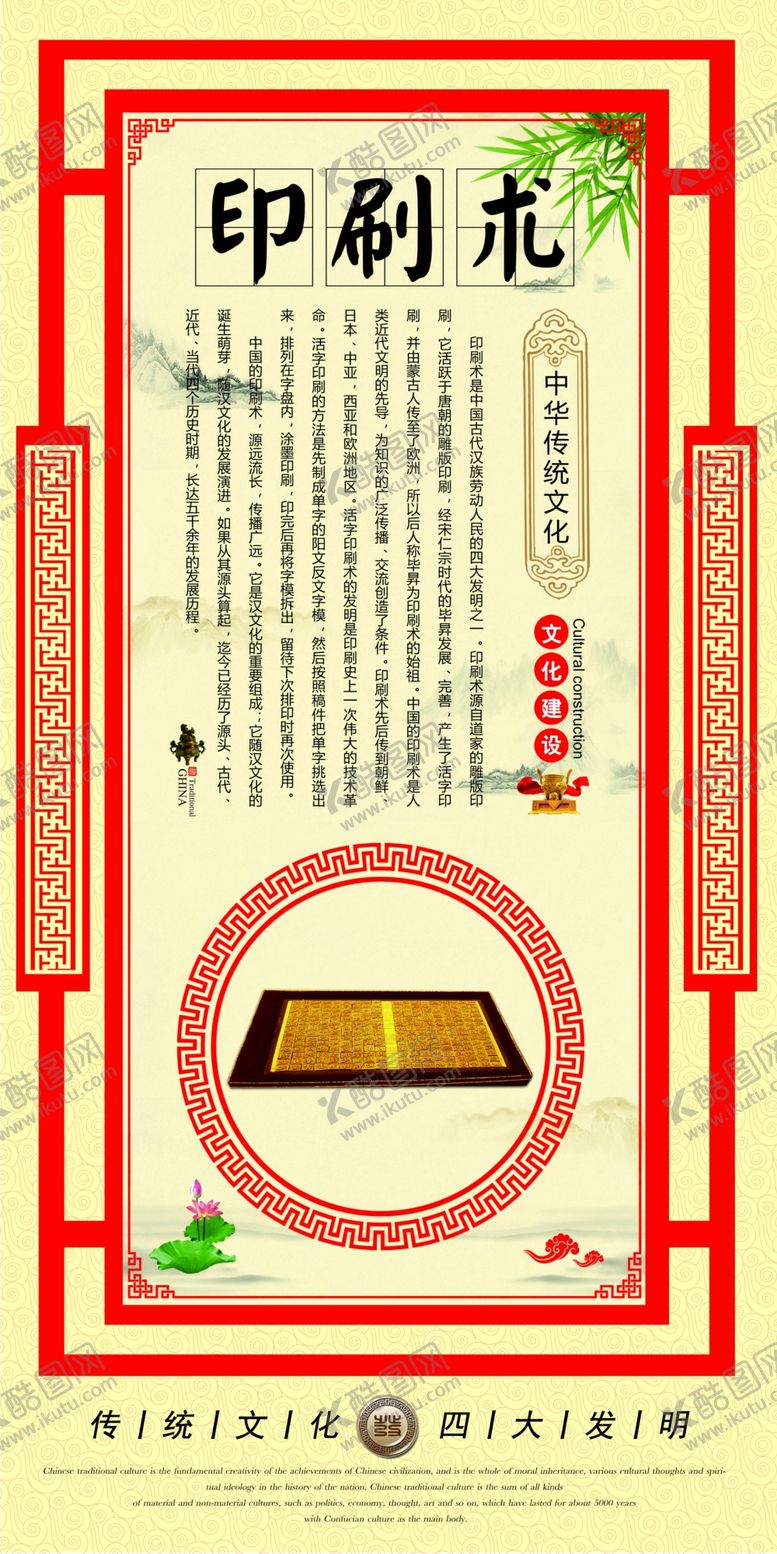 印刷术
中华传统文化
文化建设
Cultural construction
印刷术是中国古代汉族劳动人民的四大发明之一。印刷术源自道家的雕版印
刷，它活跃于唐朝的雕版印刷，经宋仁宗时代的毕昇发展、完善，产生了活字印
刷，并由蒙古人传至了欧洲，所以后人称毕昇为印刷术的始祖。中国的印刷术是人
类近代文明的先导，为知识的广泛传播、交流创造了条件。印刷术先后传到朝鲜、
日本、中亚，西亚和欧洲地区。活字印刷术的发明是印刷史上一次伟大的技术革
命。活字印刷的方法是先制成单字的阳文反文字模，然后按照稿件把单字挑选出
来，排列在字盘内，涂墨印刷，印完后再将字模拆出，留待下次排印时再次使用。
中国的印刷术，源远流长，传播广远。它是汉文化的重要组成；它随汉文化的
诞生萌芽，随汉文化的发展演进。如果从其源头算起，迄今已经历了源头、古代、
近代、当代四个历史时期，长达五千余年的发展历程。
Traditional
GHINA
传统文化 四大发明
Chinese traditional culture is the fundamental creativity of the achievements of Chinese civilization, and is the whole of moral inheritance, various cultural thoughts and spiri-
tual ideology in the history of the nation. Chinese traditional culture is the sum of all kinds
of material and non-material cultures, such as politics, economy, thought, art and so on, which have lasted for about 5000 years
with Confucian culture as the main body.
酷图网
www.ikutu.com